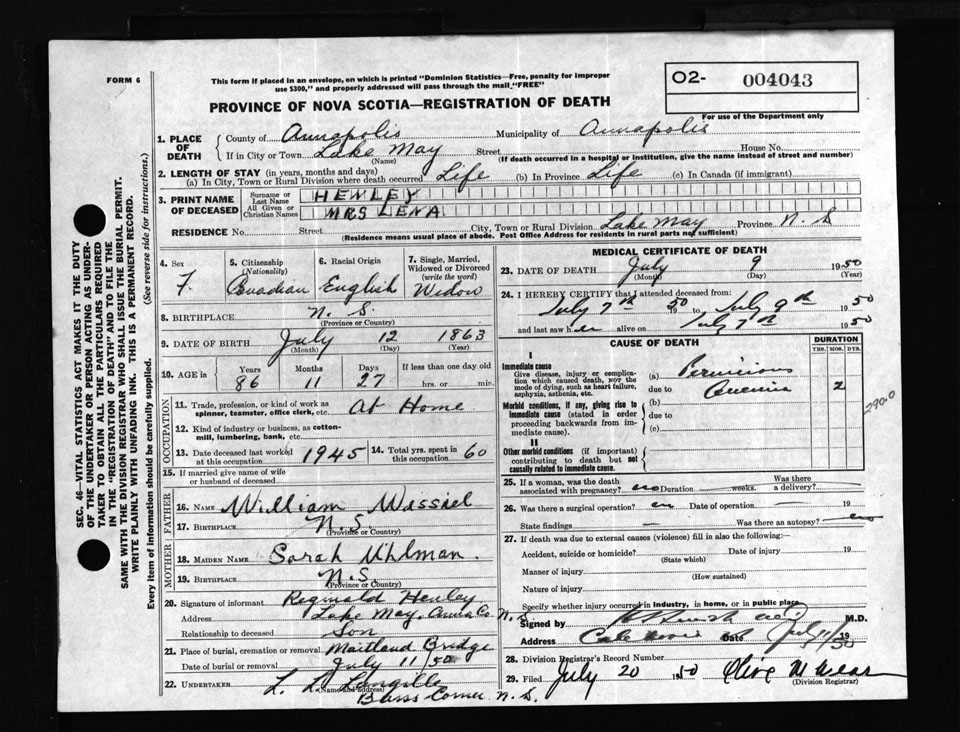 FORM 6
This form if placed in an envelope, on which is printed "Dominion Statistics—Free, penalty for improper
use $300," and properly addressed will pass through the mail "FREE"
O2- 004043
For use of the Department only
PROVINCE OF NOVA SCOTIA—REGISTRATION OF DEATH
1. PLACE OF DEATH
County of Annapolis Municipality of Annapolis
If in City or Town Lake May Street House No.
(Name) (If death occurred in a hospital or institution, give the name instead of street and number)
2. LENGTH OF STAY (in years, months and days)
(a) In City, Town or Rural Division where death occurred Life (b) In Province Life (c) In Canada (if immigrant)
3. PRINT NAME OF DECEASED
Surname or Last Name HEWLEY
All Given or Christian Names MRS LENA
RESIDENCE No. Street City, Town or Rural Division Lake May Province N. S
(Residence means usual place of abode. Post Office Address for residents in rural parts not sufficient)
4. Sex F.
5. Citizenship (Nationality) Canadian
6. Racial Origin English
7. Single, Married, Widowed or Divorced (write the word) Widow
8. BIRTHPLACE N. S.
(Province or Country)
9. DATE OF BIRTH July 12 1863
(Month) (Day) (Year)
10. AGE in Years Months Days If less than one day old
86 11 27 hrs. or min.
OCCUPATION
11. Trade, profession, or kind of work as spinner, teamster, office clerk, etc. At Home
12. Kind of industry or business, as cotton-mill, lumbering, bank, etc.
13. Date deceased last worked at this occupation 1945
14. Total yrs. spent in this occupation 60
15. If married give name of wife or husband of deceased
FATHER
16. NAME William
17. BIRTHPLACE N. S.
MOTHER
18. MAIDEN NAME Sarah Uhlman.
19. BIRTHPLACE N. S.
(Province or Country)
20. Signature of informant Reginald Henley
Address Lake May Anna Co. N. S.
Relationship to deceased Son
21. Place of burial, cremation or removal Maitland Bridge
Date of burial or removal July 11/50
22. UNDERTAKER L. L. Langille
(Name and address) Barss Corner N. S.
MEDICAL CERTIFICATE OF DEATH
23. DATE OF DEATH July 9 1950
(Month) (Day) (Year)
24. I HEREBY CERTIFY that I attended deceased from:
July 7th 1950 to July 9th 1950
and last saw her alive on July 7th 1950
CAUSE OF DEATH
DURATION
YRS. MOS. DYS.
I
Immediate cause
Give disease, injury or complication which caused death, NOT the mode of dying, such as heart failure, asphyxia, asthenia, etc.
(a) Pernicious
due to Anemia 2
290-0
Morbid conditions, if any, giving rise to immediate cause (stated in order proceeding backwards from immediate cause).
(b)
due to
(c)
II
Other morbid conditions (if important) contributing to death but not causally related to immediate cause.
25. If a woman, was the death associated with pregnancy? no Duration weeks. Was there a delivery?
26. Was there a surgical operation? no Date of operation 19
State findings Was there an autopsy? no
27. If death was due to external causes (violence) fill in also the following:
Accident, suicide or homicide? Date of injury 19
(State which)
Manner of injury
(How sustained)
Nature of injury
Specify whether injury occurred in industry, in home, or in public place
Signed by M.D.
Address Date July 11/50 19
28. Division Registrar's Record Number
29. Filed July 20 1950 Olive M
(Division Registrar)
SEC. 46—VITAL STATISTICS ACT MAKES IT THE DUTY
OF THE UNDERTAKER OR PERSON ACTING AS UNDER-
TAKER TO OBTAIN ALL THE PARTICULARS REQUIRED
IN THE "REGISTRATION OF DEATH" AND TO FILE THE
SAME WITH THE DIVISION REGISTRAR WHO SHALL ISSUE THE BURIAL PERMIT.
WRITE PLAINLY WITH UNFADING INK. THIS IS A PERMANENT RECORD.
Every item of information should be carefully supplied. (See reverse side for instructions.)